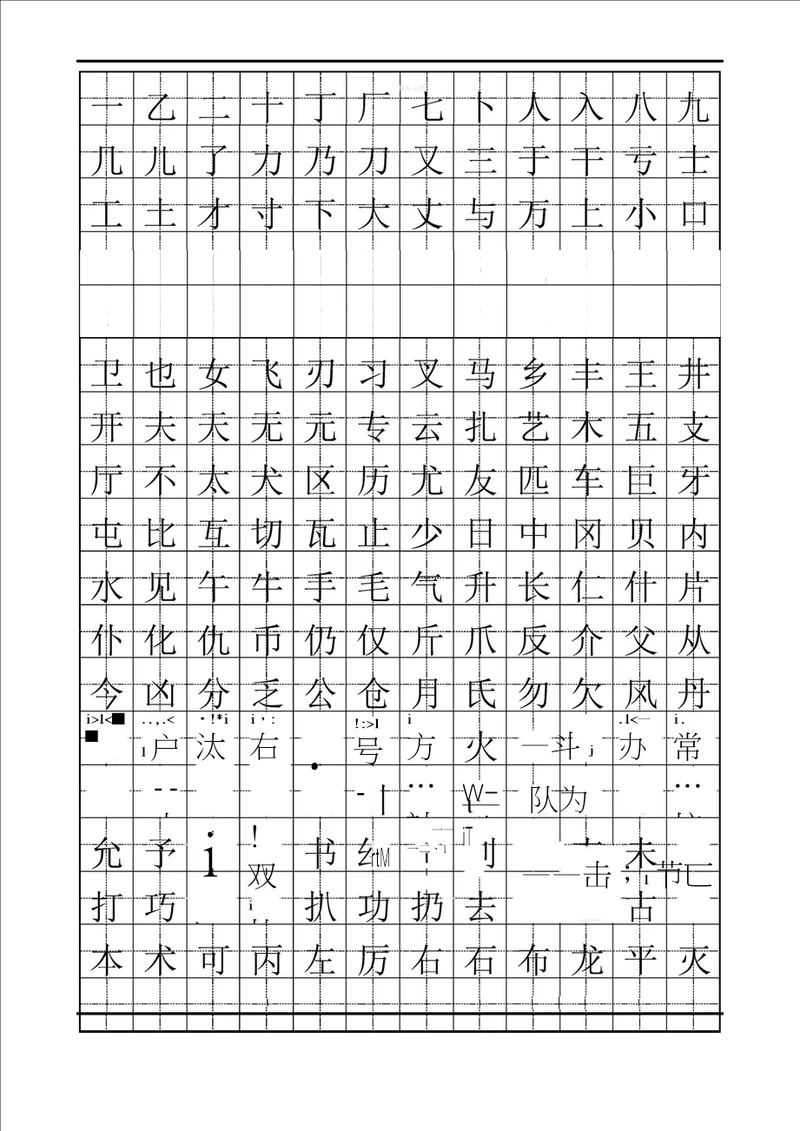 一 乙 二 十 丁 厂 七 卜 人 入 八 九
几 儿 了 力 乃 刀 又 三 于 干 亏 士
工 土 才 寸 下 大 丈 与 万 上 小 口
卫 也 女 飞 刃 习 叉 马 乡 丰 王 井
开 夫 天 无 元 专 云 扎 艺 木 五 支
厅 不 太 犬 区 历 尤 友 匹 车 巨 牙
屯 比 互 切 瓦 止 少 日 中 冈 贝 内
水 见 午 牛 手 毛 气 升 长 仁 什 片
仆 化 仇 币 仍 仅 斤 爪 反 介 父 从
今 凶 分 乏 公 仓 月 氏 勿 欠 风 丹
户 汰 右 号 方 火 斗 办 常
队为
允 予 i ! 双 书 未
击 节
打 巧 扒 功 扔 去 古
本 术 可 丙 左 厉 右 石 布 龙 平 灭